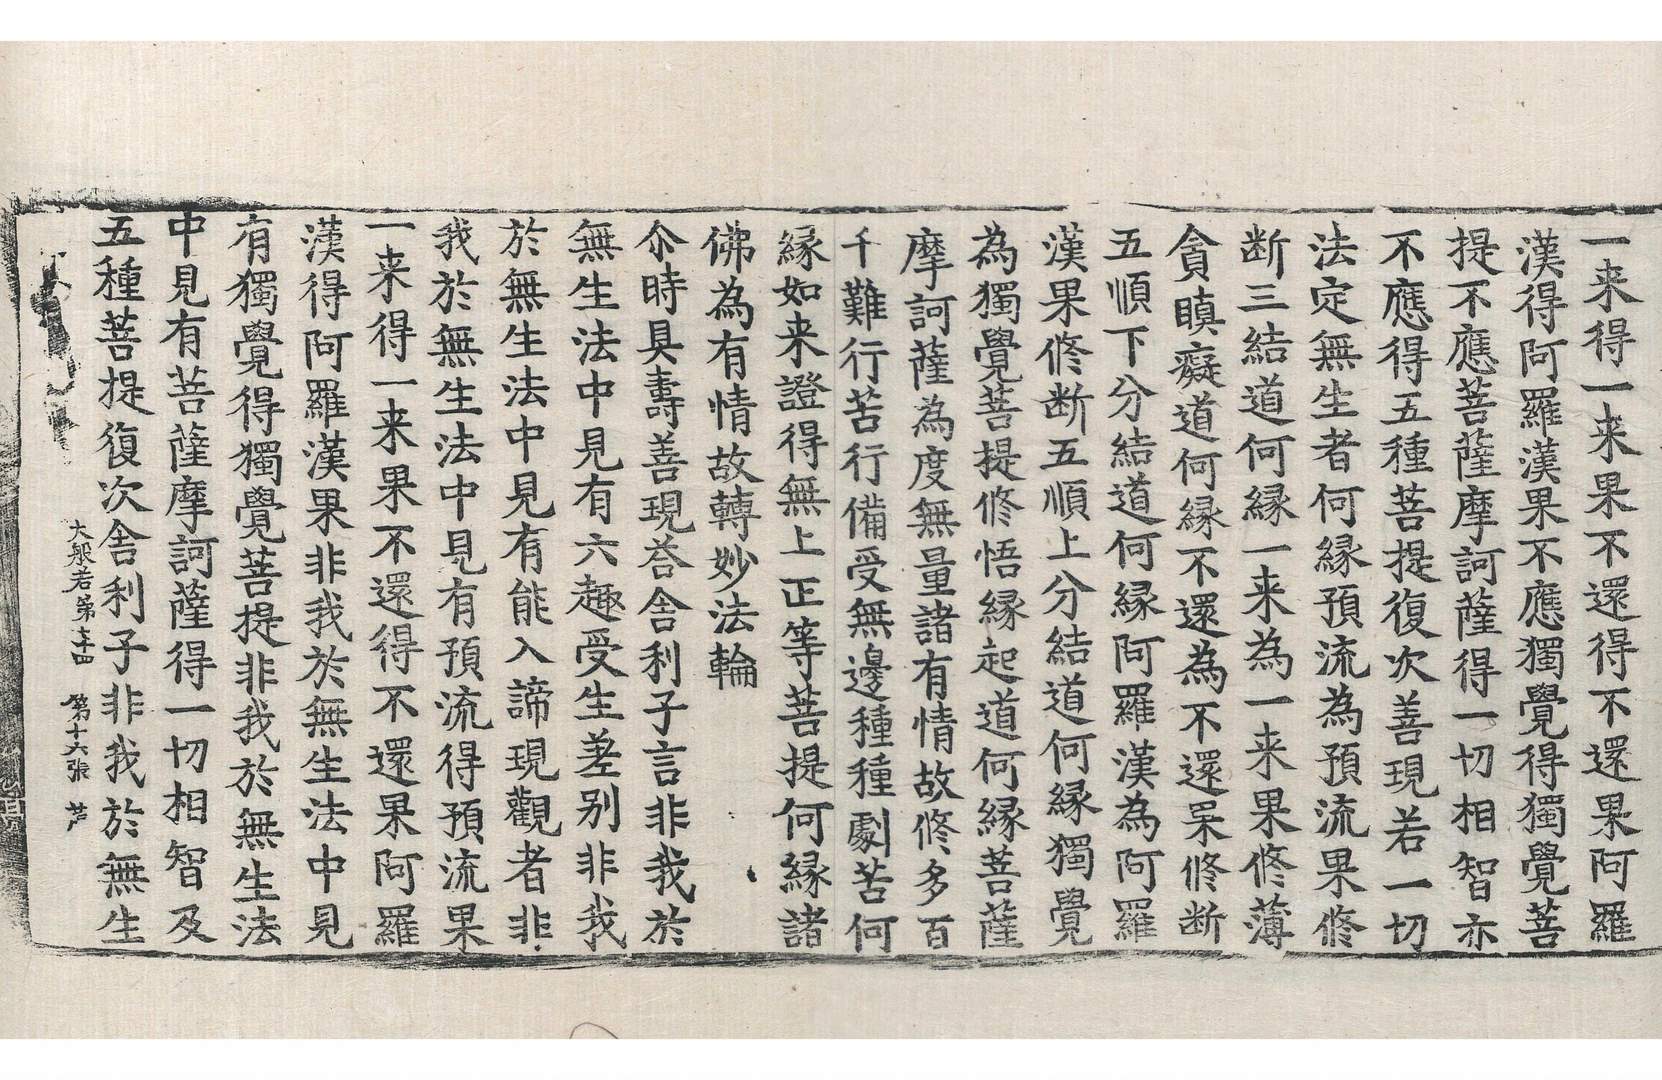 一来得一来果不還得不還果阿羅
漢得阿羅漢果不應獨覺得獨覺菩
提不應菩薩摩訶薩得一切相智亦
不應得五種菩提復次善現若一切
法定無生者何緣預流為預流果修
断三結道何緣一来為一来果修薄
貪瞋癡道何緣不還為不還果修断
五順下分結道何緣阿羅漢為阿羅
漢果修断五順上分結道何緣獨覺
為獨覺菩提修悟緣起道何緣菩薩
摩訶薩為度無量諸有情故修多百
千難行苦行備受無邊種種劇苦何
緣如来證得無上正等菩提何緣諸
佛為有情故轉妙法輪
尒時具壽善現荅舍利子言非我於
無生法中見有六趣受生差别非我
於無生法中見有能入諦現觀者非
我於無生法中見有預流得預流果
一来得一来果不還得不還果阿羅
漢得阿羅漢果非我於無生法中見
有獨覺得獨覺菩提非我於無生法
中見有菩薩摩訶薩得一切相智及
五種菩提復次舍利子非我於無生
大般若第七十四 第十六張 芦